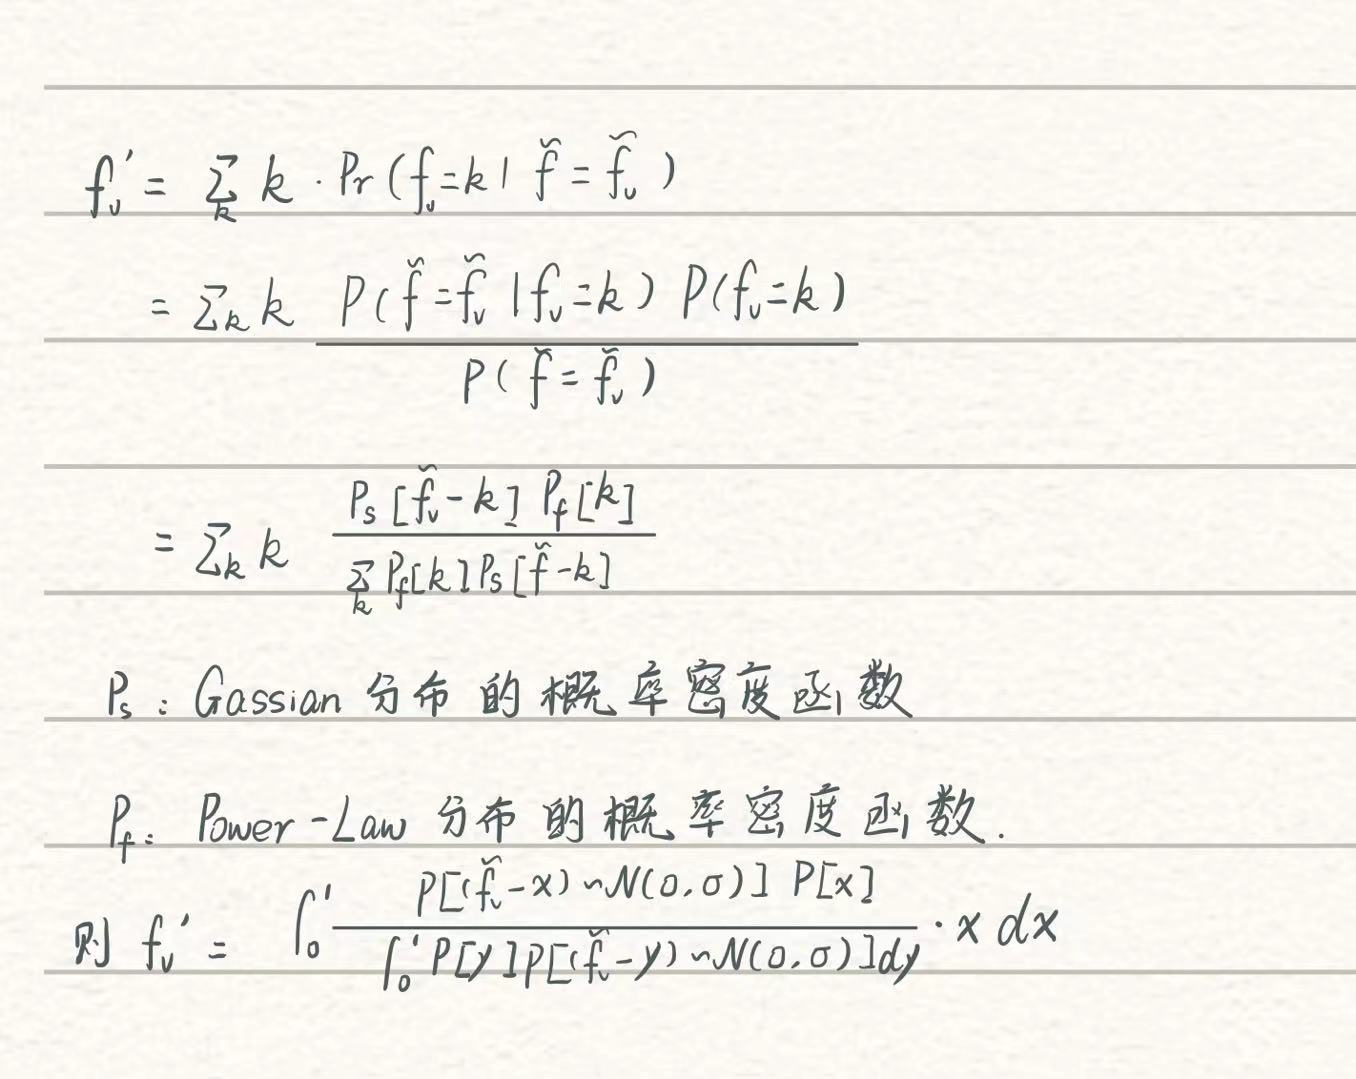 f_v' = Σ_k k · Pr(f_v=k | f̃ = f̃_v )
= Σ_k k P( f̃ = f̃_v | f_v = k ) P(f_v = k ) / P( f̃ = f̃_v )
= Σ_k k P_s [f̃_v - k] P_f [k] / Σ_k P_f[k] P_s [f̃ - k]
P_s : Gassian 分布 的 概率密度函数
P_f : Power-Law 分布 的 概率密度函数.
则 f_v' = ∫_0^1 P[(f̃_v - x) ~ N(0,σ)] P[x] / ∫_0^1 P[y] P[(f̃_v - y) ~ N(0,σ)] dy · x dx